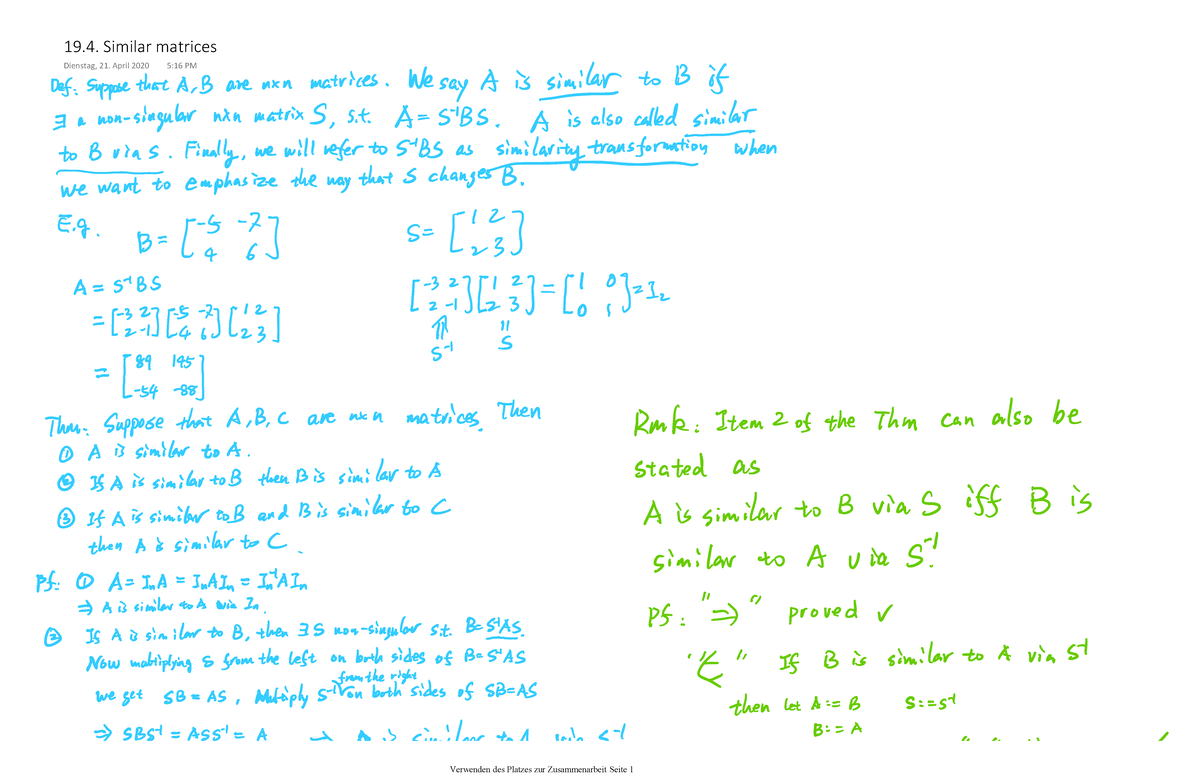 19.4. Similar matrices
Dienstag, 21. April 2020 5:16 PM
Def: Suppose that A, B are n×n matrices. We say A is similar to B if
∃ a non-singular n×n matrix S, s.t. A = S⁻¹BS. A is also called similar
to B via S. Finally, we will refer to S⁻¹BS as similarity transformation when
we want to emphasize the way that S changes B.
E.g. B = [-5 -7; 4 6] S = [1 2; 2 3]
A = S⁻¹BS
= [-3 2; 2 -1] [-5 -7; 4 6] [1 2; 2 3]
= [89 145; -54 -88]
[-3 2; 2 -1] [1 2; 2 3] = [1 0; 0 1] = I₂
⇑ S⁻¹ = S
Thm: Suppose that A, B, C are n×n matrices. Then
① A is similar to A.
② If A is similar to B then B is similar to A
③ If A is similar to B and B is similar to C
then A is similar to C.
Pf: ① A = IₙA = IₙAIₙ = Iₙ⁻¹AIₙ
⇒ A is similar to A via Iₙ.
② If A is similar to B, then ∃ S non-singular s.t. B = S⁻¹AS.
Now multiplying S from the left on both sides of B = S⁻¹AS
we get SB = AS, Multiply S⁻¹ from the right on both sides of SB = AS
⇒ SBS⁻¹ = ASS⁻¹ = A
Rmk: Item 2 of the Thm can also be
stated as
A is similar to B via S iff B is
similar to A via S⁻¹.
Pf: "⇒" proved ✓
"⇐" If B is similar to A via S⁻¹
then let A := B S := S⁻¹
B := A
Verwenden des Platzes zur Zusammenarbeit Seite 1